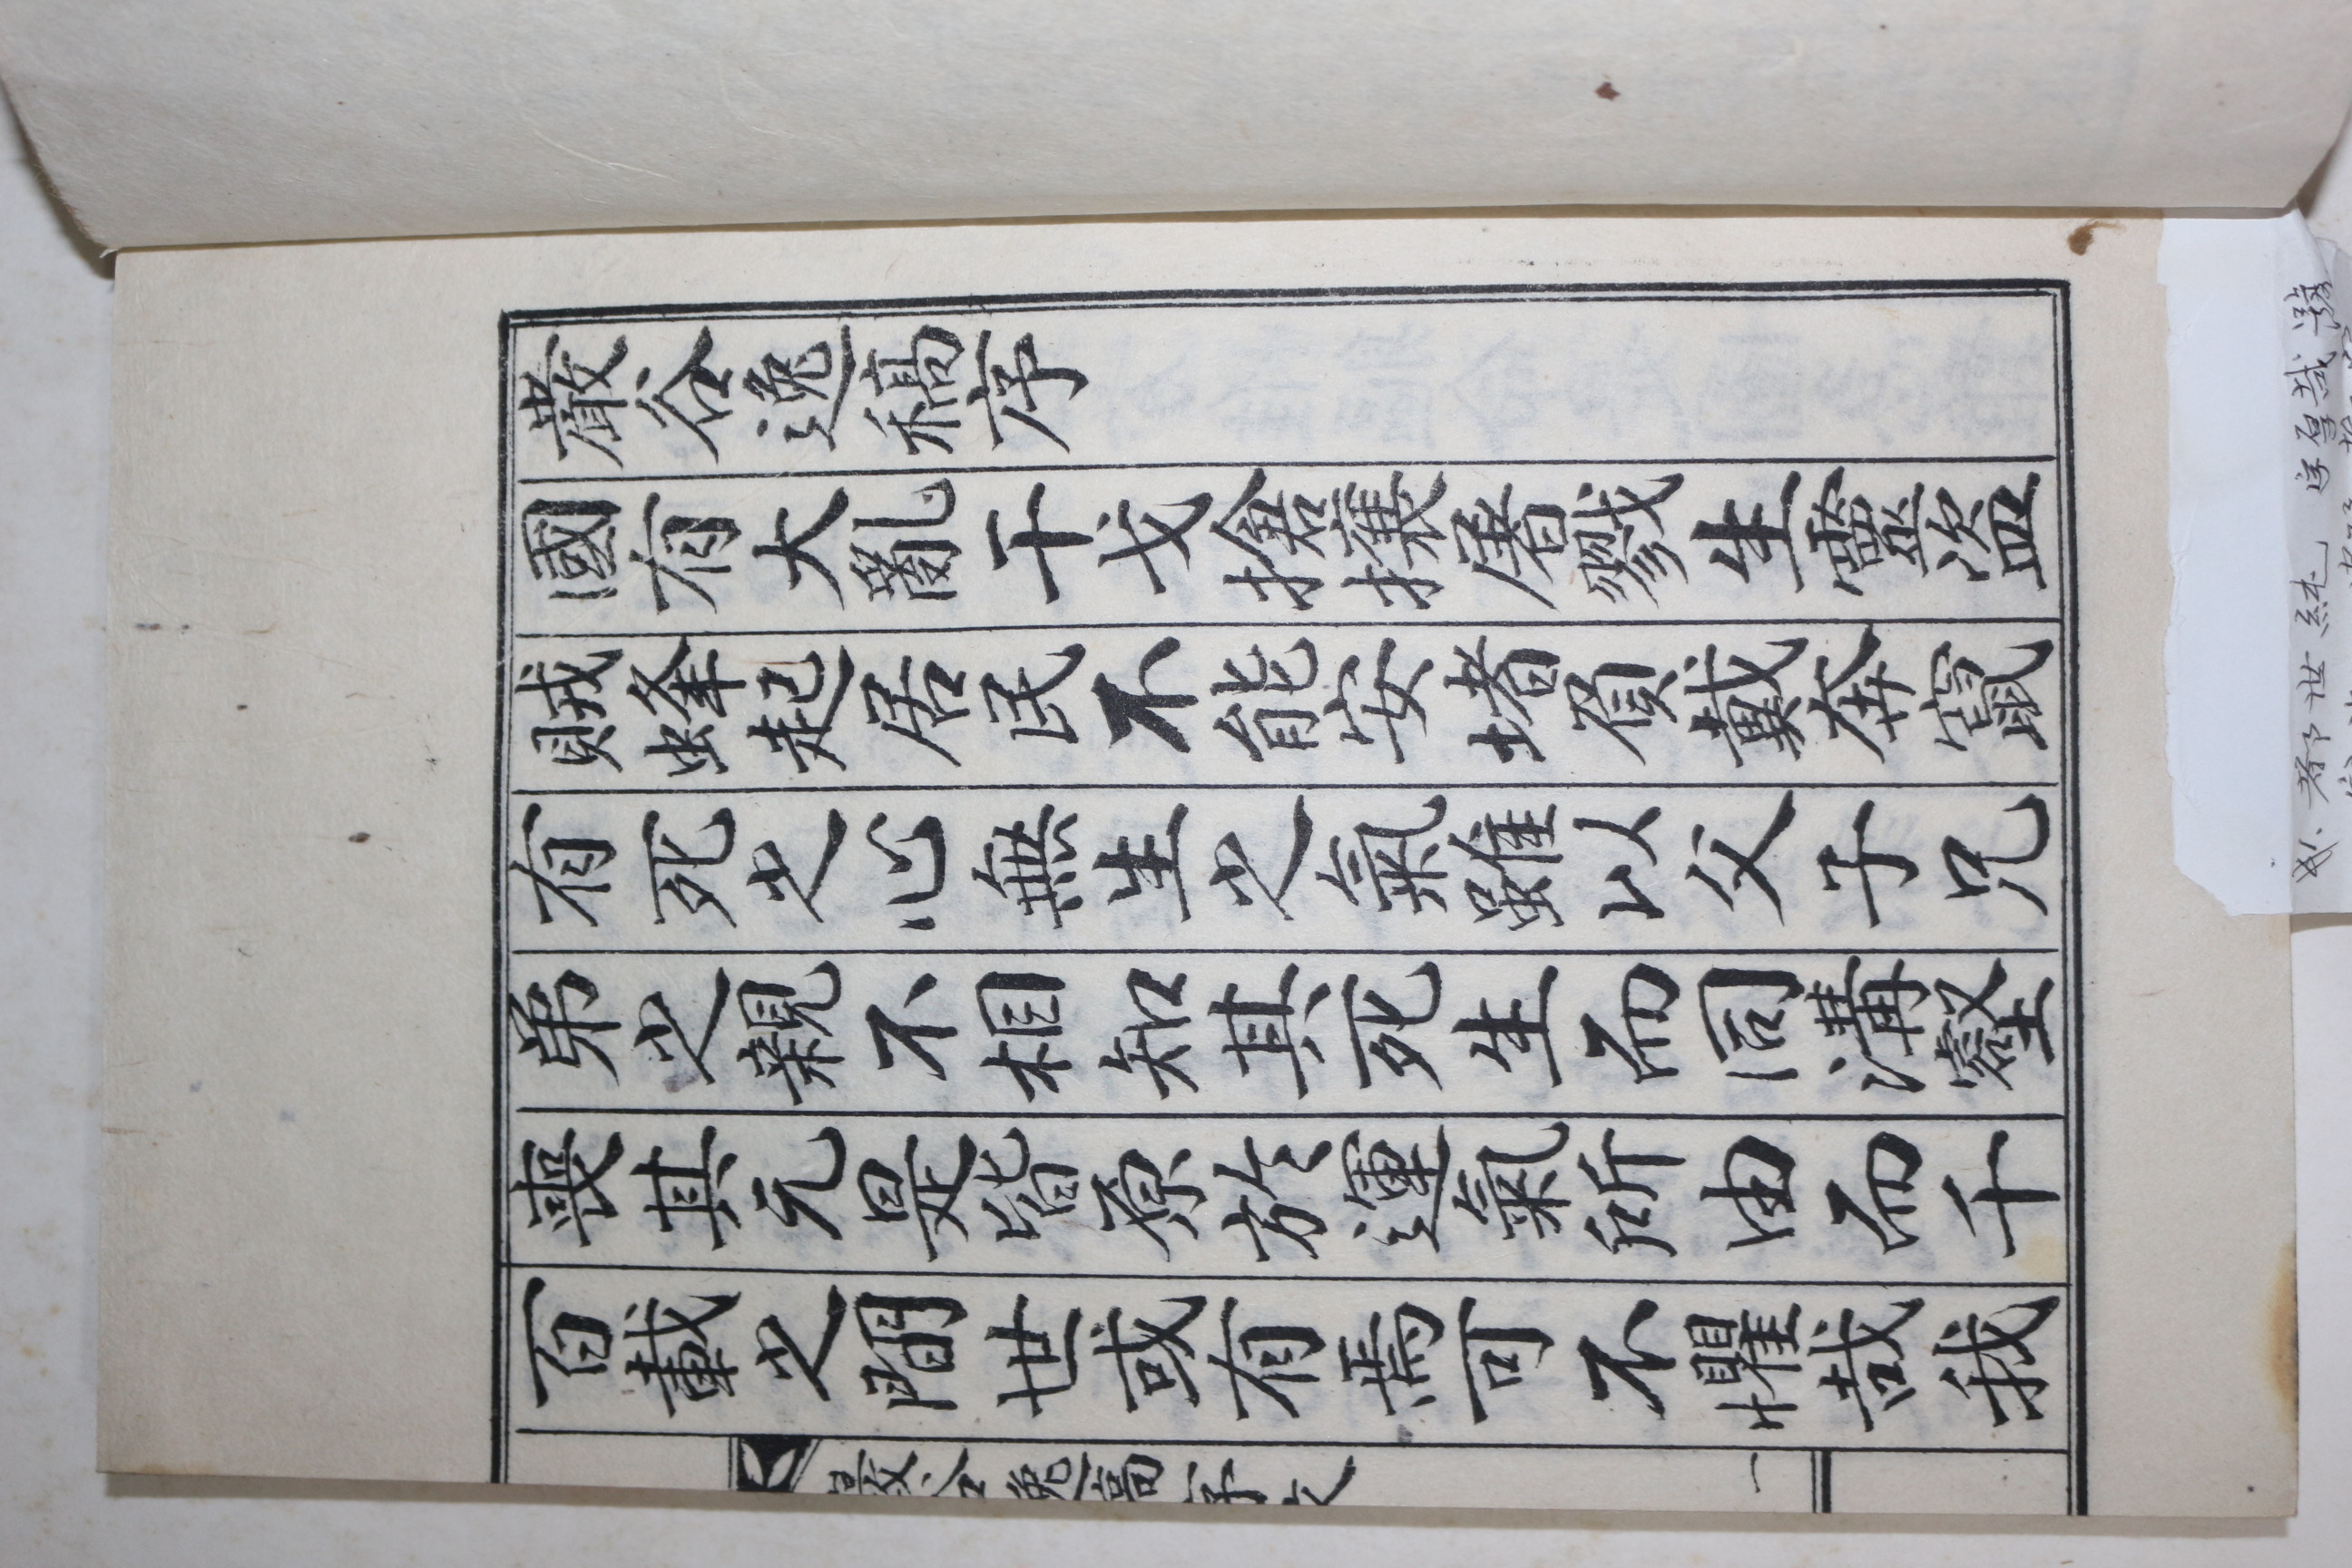 巖谷逸稿序
國有大亂干戈搶攘屠戮生靈盜
賊蜂起居民不能安堵負戴奔竄
有死之心無生之氣雖以父子兄
弟之親不相知其死生而同溝壑
喪其元是皆原於運氣所由而千
百載之間世或有焉可不懼哉我
巖谷逸稿序文
一
都世純 字厚哉 號